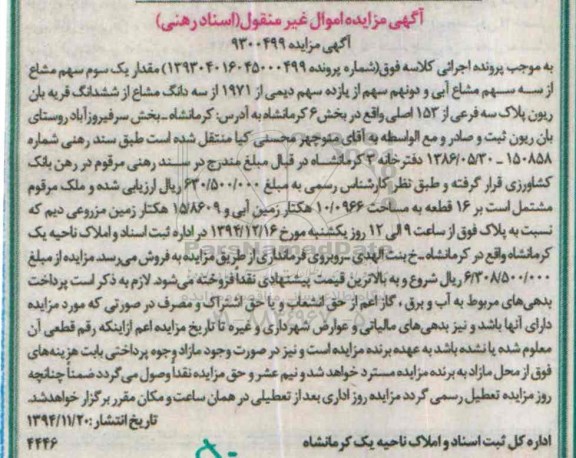 آگهی مزایده اموال غیر منقول(اسناد رهنی)
آگهی مزایده ۹۳۰۰۴۹۹
به موجب پرونده اجرائی کلاسه فوق(شماره پرونده ۱۳۹۳۰۴۰۱۶۰۴۵۰۰۰۴۹۹) مقدار یک سوم سهم مشاع
از سه سهم مشاع آبی و دونهم سهم از یازده سهم دیمی از ۱۹۷۱ از سه دانگ مشاع از ششدانگ قریه بان
ریون پلاک سه فرعی از ۱۵۳ اصلی واقع در بخش۶ کرمانشاه به آدرس: کرمانشاه ـ بخش سرفیروزآباد روستای
بان ریون ثبت و صادر و مع الواسطه به آقای منوچهر محسنی کیا منتقل شده است طبق سند رهنی شماره
۱۵۰۸۵۸ ـ ۱۳۸۶/۰۵/۳۰ دفترخانه ۳ کرمانشاه در قبال مبلغ مندرج در سند رهنی مرقوم در رهن بانک
کشاورزی قرار گرفته و طبق نظر کارشناس رسمی به مبلغ ۶۳۰/۵۰۰/۰۰۰ ریال ارزیابی شده و ملک مرقوم
مشتمل است بر ۱۶ قطعه به مساحت ۱۰/۰۹۶۶ هکتار زمین آبی و ۱۵/۸۶۰۹ هکتار زمین مزروعی دیم که
نسبت به پلاک فوق از ساعت ۹ الی ۱۲ روز یکشنبه مورخ ۱۳۹۴/۱۲/۱۶ در اداره ثبت اسناد و املاک ناحیه یک
کرمانشاه واقع در کرمانشاه ـ خ بنت الهدی ـ روبروی فرمانداری از طریق مزایده به فروش می‌رسد. مزایده از مبلغ
۶/۳۰۸/۵۰۰/۰۰۰ ریال شروع و به بالاترین قیمت پیشنهادی نقدا فروخته می شود. لازم به ذکر است پرداخت
بدهی‌های مربوط به آب و برق ، گاز اعم از حق انشعاب و یا حق اشتراک و مصرف در صورتی که مورد مزایده
دارای آنها باشد و نیز بدهی‌های مالیاتی و عوارض شهرداری و غیره تا تاریخ مزایده اعم ازاینکه رقم قطعی آن
معلوم شده یا نشده باشد به عهده برنده مزایده است و نیز در صورت وجود مازاد وجوه پرداختی بابت هزینه‌های
فوق از محل مازاد به برنده مزایده مسترد خواهد شد و نیم عشر و حق مزایده نقدا وصول می گردد ضمناً چنانچه
روز مزایده تعطیل رسمی گردد مزایده روز اداری بعد از تعطیلی در همان ساعت و مکان مقرر برگزار خواهدشد.
تاریخ انتشار: ۱۳۹۴/۱۱/۲۰
اداره کل ثبت اسناد و املاک ناحیه یک کرمانشاه
۴۴۴۶
ParsNamadData